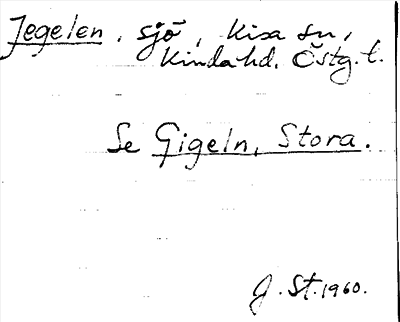 Jegelen, sjö, Kisa sn,
Kinda hd. Östg. l.
Se Gigeln, Stora.
J. St. 1960.